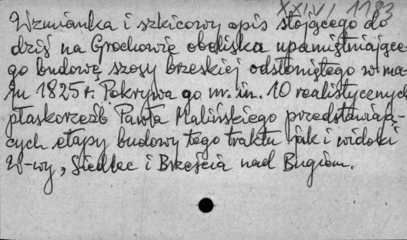 XXIV/1183
Wzmianka i szkicowy opis stojącego do
dziś na Grochowie obeliska upamiętniające-
go budowę szosy brzeskiej odsłoniętego w ma-
ju 1825 r. Pokrywa go m.in. 10 realistycznych
płaskorzeźb Pawła Malińskiego przedstawiają-
cych etapy budowy tego traktu jak i widoki
W-wy, Siedlec i Brześcia nad Bugiem.